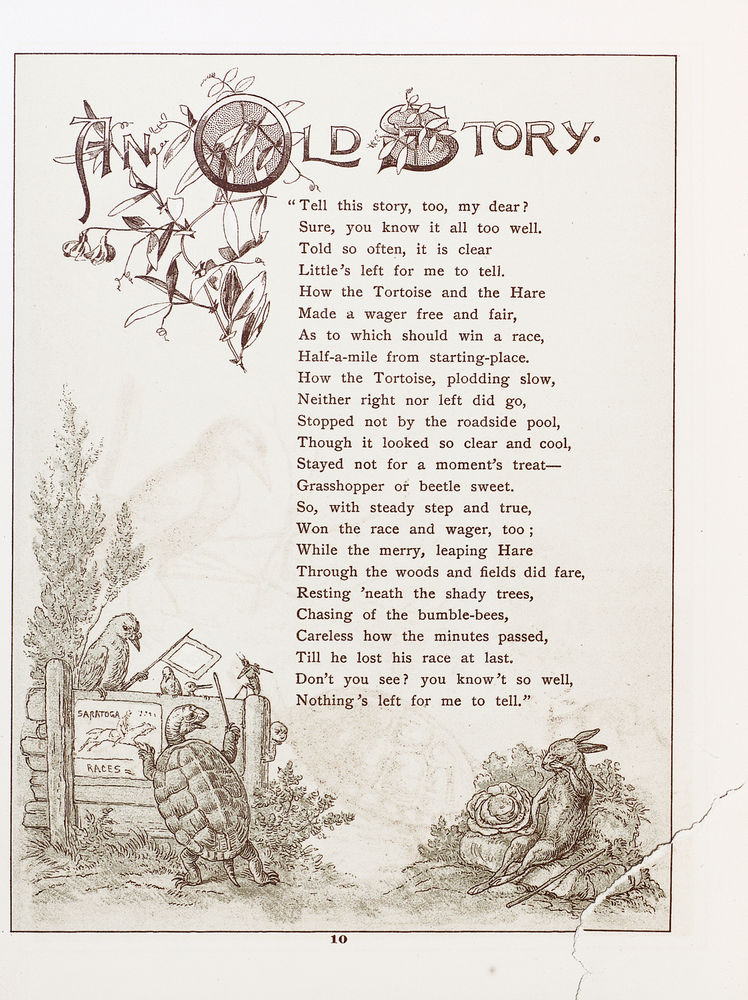 An Old Story.
“Tell this story, too, my dear?
Sure, you know it all too well.
Told so often, it is clear
Little’s left for me to tell.
How the Tortoise and the Hare
Made a wager free and fair,
As to which should win a race,
Half-a-mile from starting-place.
How the Tortoise, plodding slow,
Neither right nor left did go,
Stopped not by the roadside pool,
Though it looked so clear and cool,
Stayed not for a moment’s treat—
Grasshopper or beetle sweet.
So, with steady step and true,
Won the race and wager, too;
While the merry, leaping Hare
Through the woods and fields did fare,
Resting ’neath the shady trees,
Chasing of the bumble-bees,
Careless how the minutes passed,
Till he lost his race at last.
Don’t you see? you know’t so well,
Nothing’s left for me to tell.”
SARATOGA
RACES
10